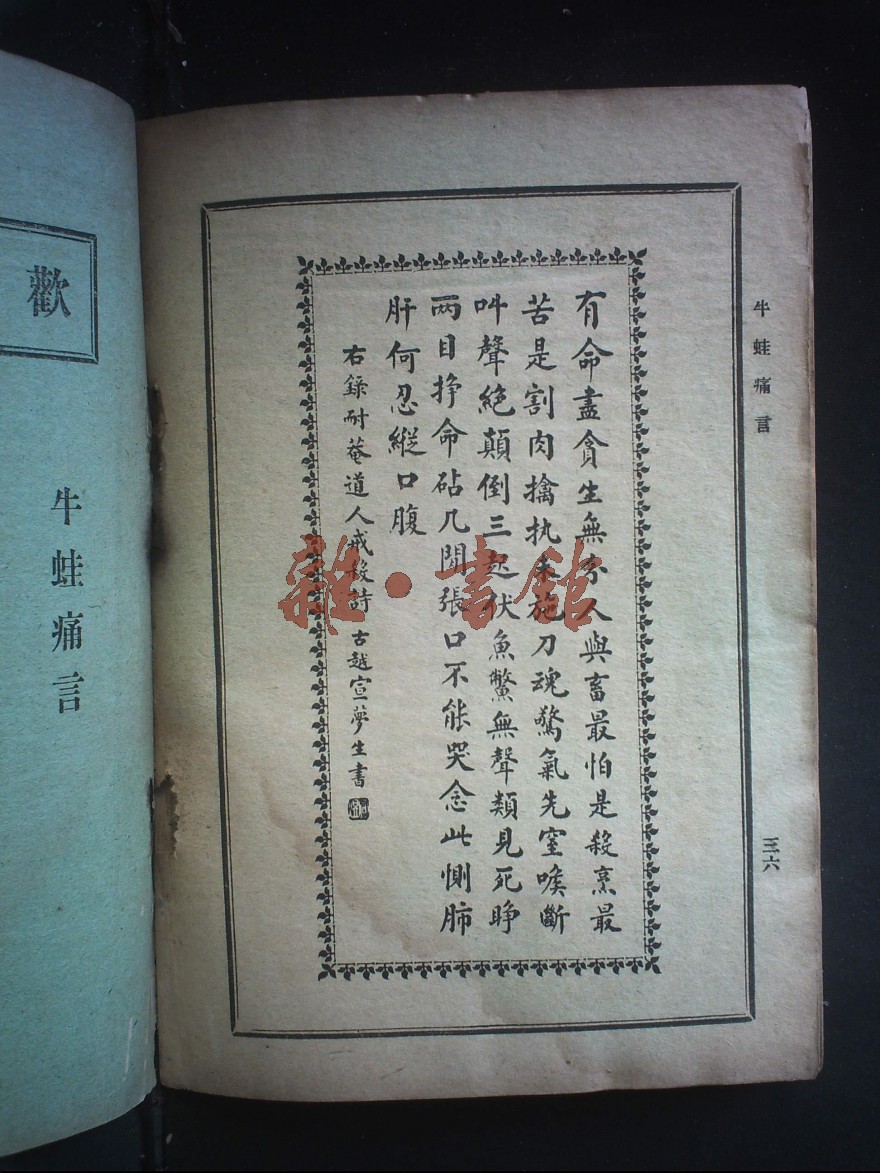 牛蛙痛言
三六
有命盡貪生無分人與畜最怕是殺烹最
苦是割肉擒执未施刀魂驚氣先窒喉斷
呌聲絶顛倒三起伏魚鱉無聲類見死睜
两目挣命砧几間張口不能哭念此惻肺
肝何忍縱口腹
右錄耐菴道人戒殺詩 古越宣夢生書
雜·書館
歡
牛蛙痛言